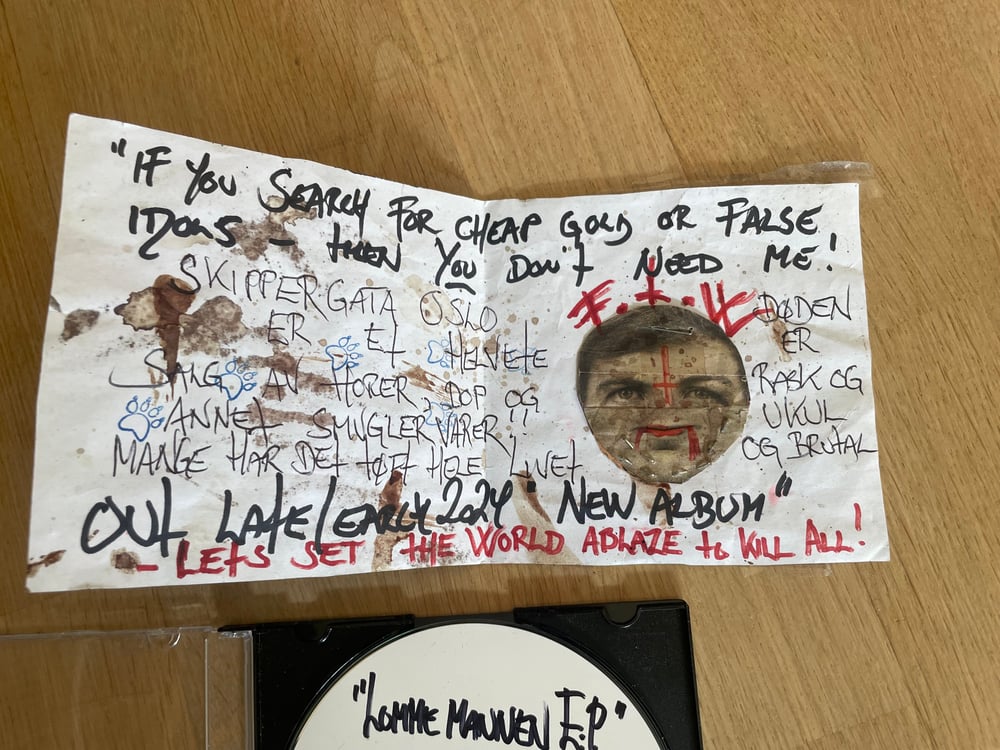 "IF YOU SEARCH FOR CHEAP GOLD OR FALSE
IDOLS - then YOU DON't NEED ME!
SKIPPERGATA OSLO
ER Et HELVETE
SALG AV HORER, DOP OG
ANNET SMUGLERVARER!!
MANGE HAR DET tØFT HELE LIVET
F.t.W
DØDEN
ER
RASK OG
UKUL
OG BRUTAL
OUT LATE/EARLY 2024 "NEW ALBUM"
- LETS SET THE WORLD ABLAZE to KILL ALL!
"LOMME MANNEN E.P"